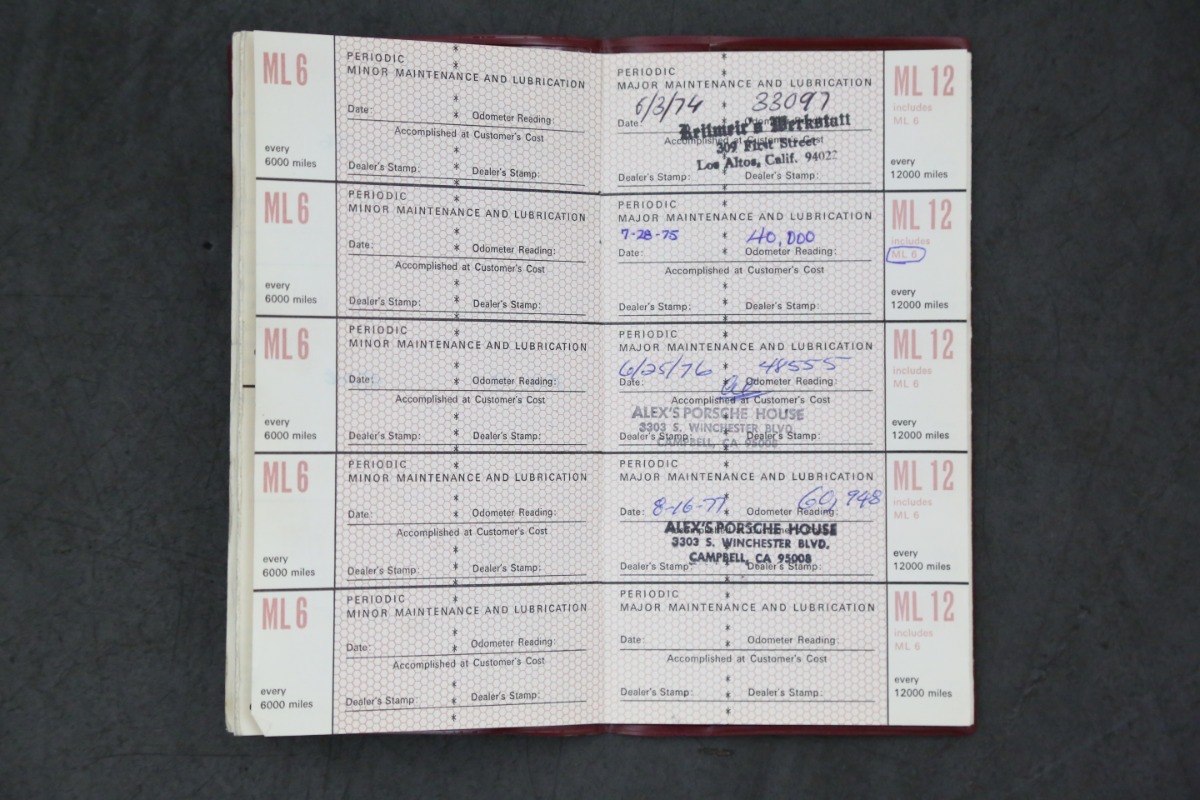 ML 6
PERIODIC
MINOR MAINTENANCE AND LUBRICATION
Date: Odometer Reading:
Accomplished at Customer's Cost
every
6000 miles
Dealer's Stamp: Dealer's Stamp:
ML 6
PERIODIC
MINOR MAINTENANCE AND LUBRICATION
Date: Odometer Reading:
Accomplished at Customer's Cost
every
6000 miles
Dealer's Stamp: Dealer's Stamp:
ML 6
PERIODIC
MINOR MAINTENANCE AND LUBRICATION
Date: Odometer Reading:
Accomplished at Customer's Cost
every
6000 miles
Dealer's Stamp: Dealer's Stamp:
ML 6
PERIODIC
MINOR MAINTENANCE AND LUBRICATION
Date: Odometer Reading:
Accomplished at Customer's Cost
every
6000 miles
Dealer's Stamp: Dealer's Stamp:
ML 6
PERIODIC
MINOR MAINTENANCE AND LUBRICATION
Date: Odometer Reading:
Accomplished at Customer's Cost
every
6000 miles
Dealer's Stamp: Dealer's Stamp:
PERIODIC
MAJOR MAINTENANCE AND LUBRICATION
6/3/74 33097
Date: Odometer Reading:
Accomplished at Customer's Cost
Werkstatt
309 First Street
Los Altos, Calif. 94022
Dealer's Stamp: Dealer's Stamp:
ML 12
includes
ML 6
every
12000 miles
PERIODIC
MAJOR MAINTENANCE AND LUBRICATION
7-28-75 40,000
Date: Odometer Reading:
Accomplished at Customer's Cost
Dealer's Stamp: Dealer's Stamp:
ML 12
includes
ML 6
every
12000 miles
PERIODIC
MAJOR MAINTENANCE AND LUBRICATION
6/25/76 48555
Date: Odometer Reading:
Accomplished at Customer's Cost
ALEX'S PORSCHE HOUSE
3303 S. WINCHESTER BLVD.
CAMPBELL, CA 95008
Dealer's Stamp: Dealer's Stamp:
ML 12
includes
ML 6
every
12000 miles
PERIODIC
MAJOR MAINTENANCE AND LUBRICATION
Date: 8-16-77 Odometer Reading: 60,948
Accomplished at Customer's Cost
ALEX'S PORSCHE HOUSE
3303 S. WINCHESTER BLVD.
CAMPBELL, CA 95008
Dealer's Stamp: Dealer's Stamp:
ML 12
includes
ML 6
every
12000 miles
PERIODIC
MAJOR MAINTENANCE AND LUBRICATION
Date: Odometer Reading:
Accomplished at Customer's Cost
Dealer's Stamp: Dealer's Stamp:
ML 12
includes
ML 6
every
12000 miles